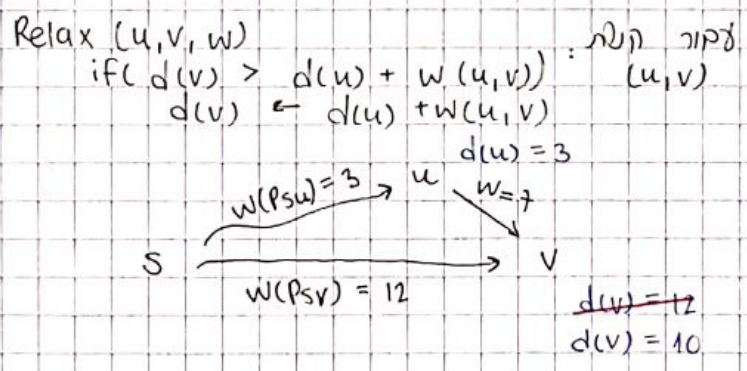 Relax (u,v,w) עבור קשת:
if( d(v) > d(u) + w(u,v)) (u,v)
d(v) ← d(u) + w(u,v)
d(u) = 3
w(Psu) = 3 u w=7
S V
w(Psv) = 12
d(v) = 12
d(v) = 10